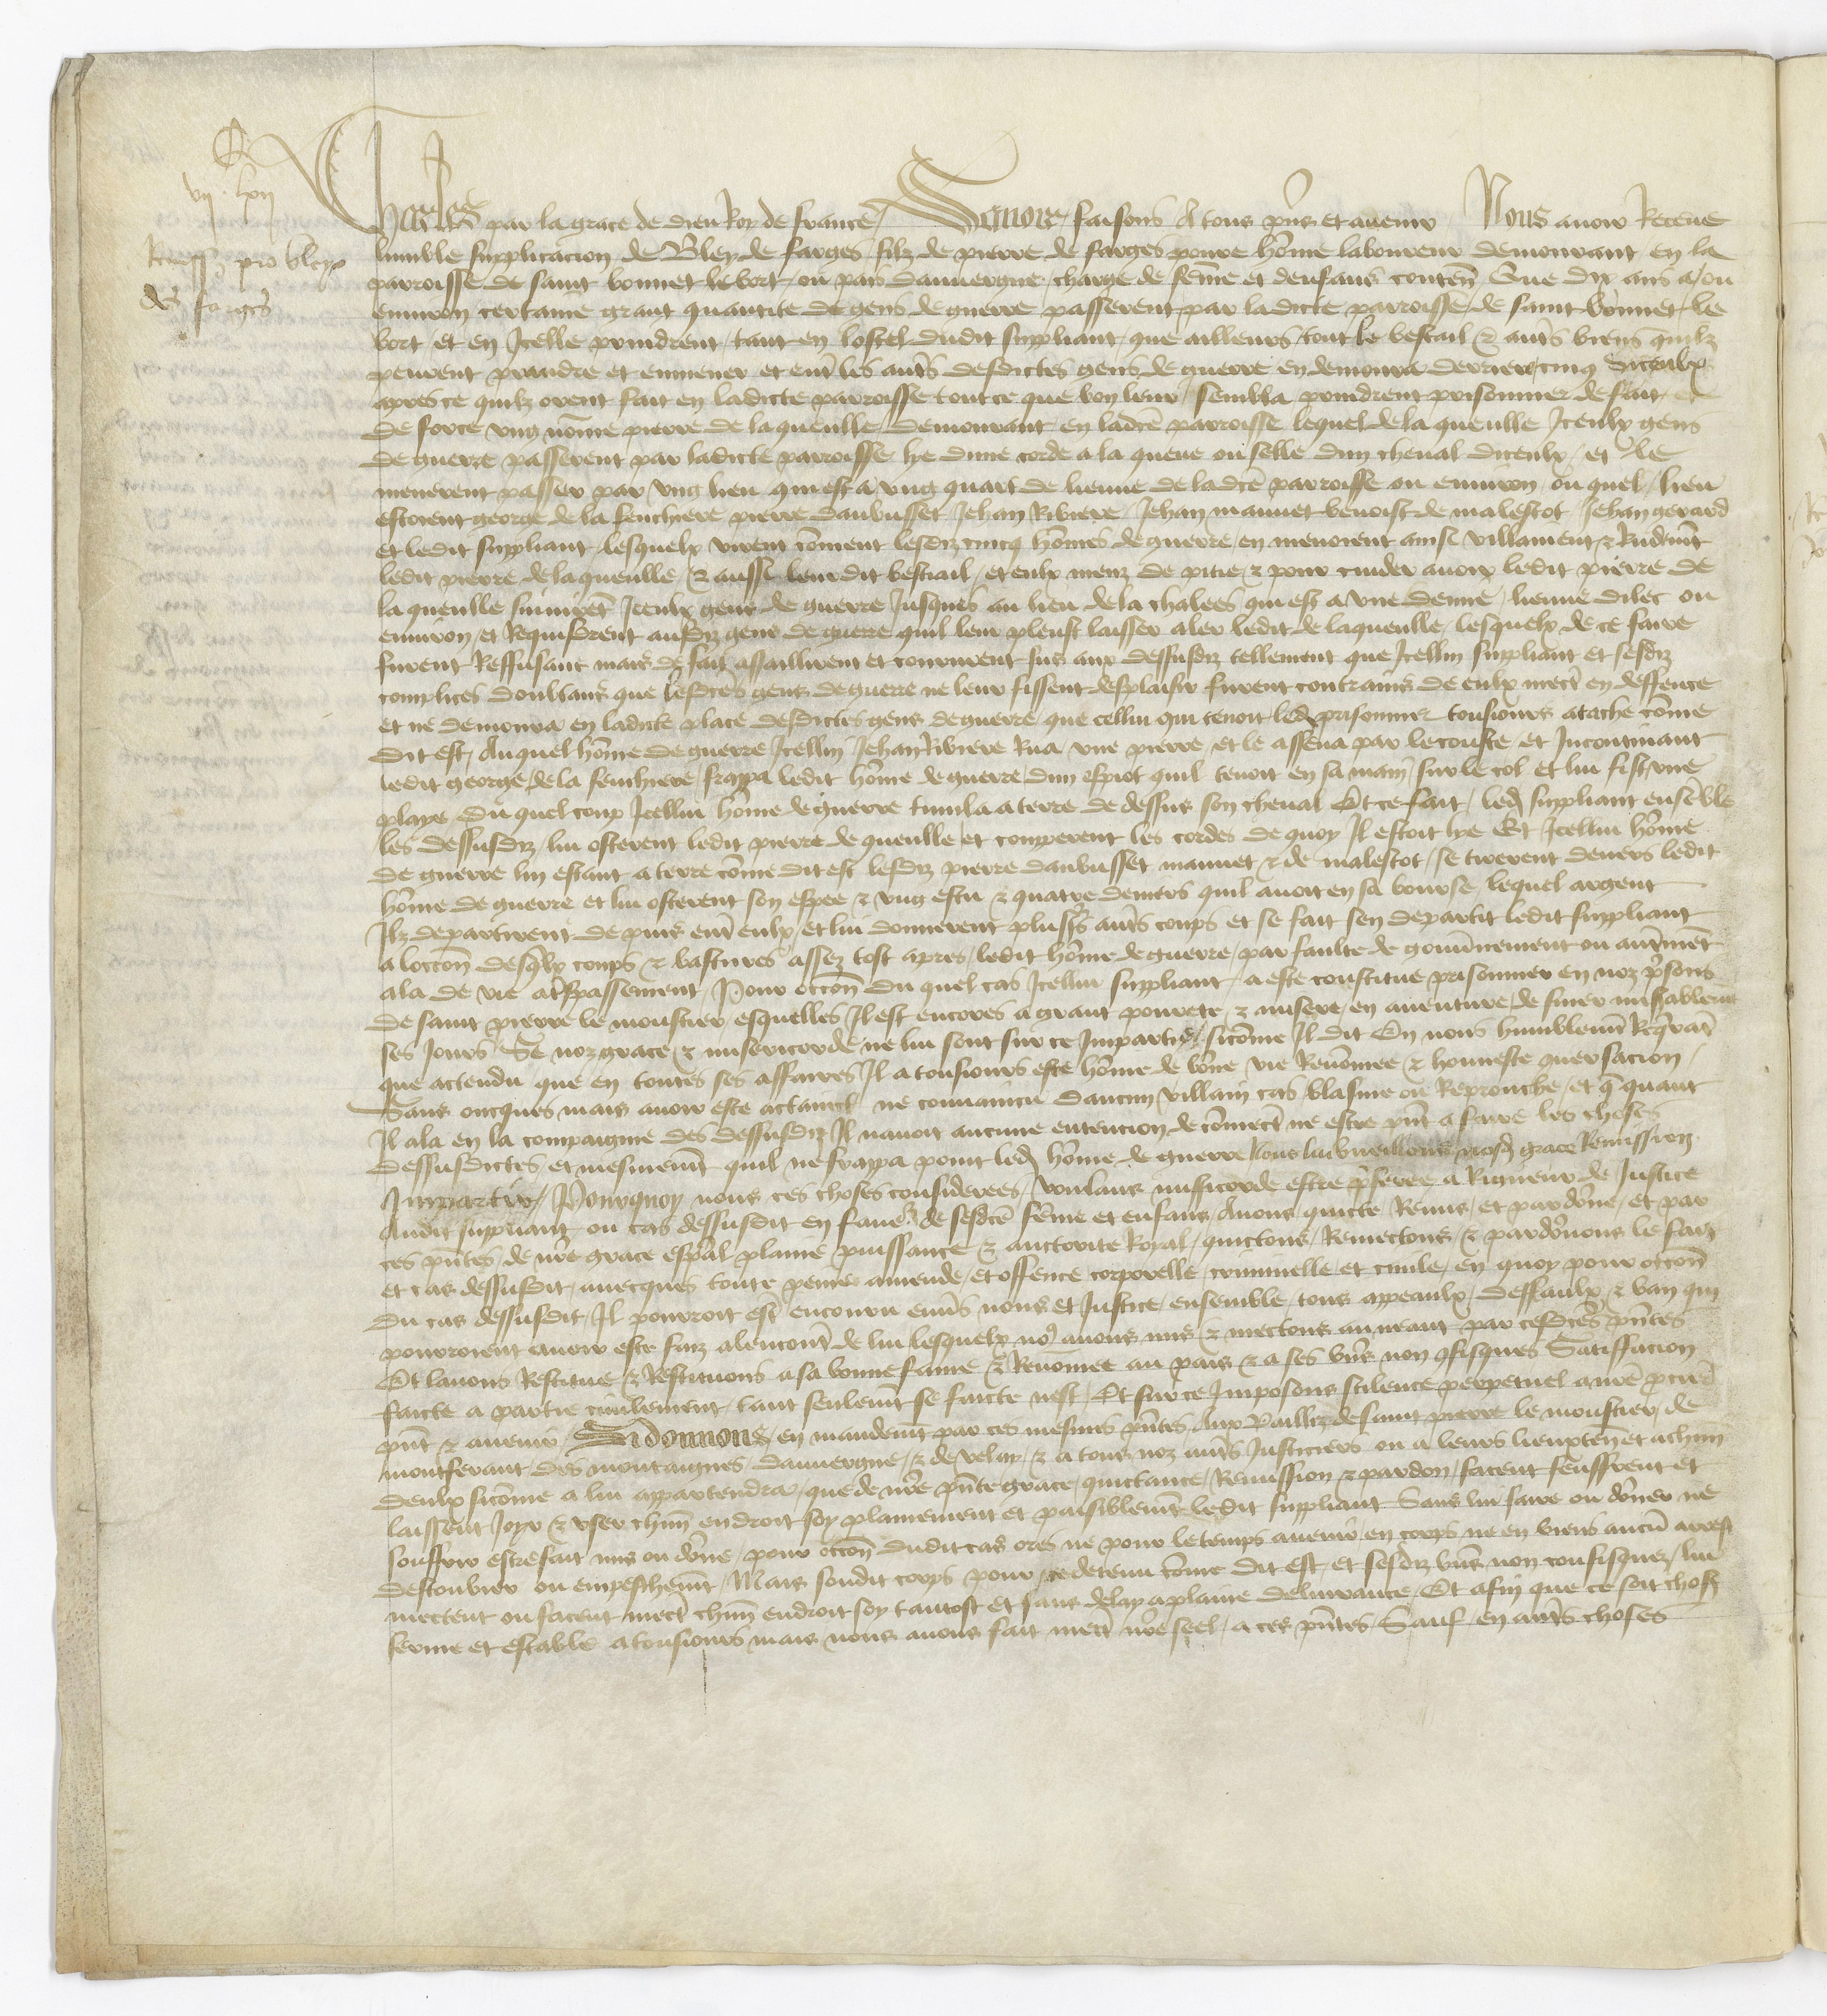 vii lxii
Remissio pro bleyx
de farges
Charles par la grace de dieu Roy de france Savoir faisons A tous pñs et avenir Nous avoir Receue
humble supplicacion de Bley de farges filz de pierre de farges povre hõme laboureur demourant en la
parroisse de saint bonnet le bort ou pais dauvergne chargé de fẽme et denfans conteñ Que dix ans a ou
environ certaine grant quantite de gens de guerre passerent par ladicte parroisse de saint bonnet le
bort et en Icelle prindrent tant en lostel dudit suppliant que ailleurs tout le bestail & auts biens quilz
peurent prandre et enmener et ent les auts desdictes gens de guerre en demoura derriere cinq diceulx
apres ce quilz orent fait en ladicte parroisse tout ce que bon leur sembla prindrent prisonnier de fait
de force ung nõme pierre de laqueulle demourant en ladcẽ parroisse lequel de la queulle Iceulx gens
de guerre passerent par ladicte parroisse lye dune corde a la queue ou selle dun cheval diceulx et le
menerent passer par ung lieu qui est a ung quart de lieue de ladcẽ parroisse ou environ ou quel lieu
estoient george de la feuchiere pierre daubusset Jehan Riviere Jehan mauvet benoist de malestot Jehan gerard
et ledit suppliant lesquelx virent cõment lesdiz cincq hõmes de guerre en menoient ainsi villament & Rudemt
ledit pierre de laqueulle & aussi leurdit bestiail et eulx meuz de pitie & pour cuider avoir ledit pierre de
la queulle suivirẽt Iceulx gens de guerre Jusques au lieu de la chalees qui est a une demie lieue dilec ou
environ et Requisdrent ausdiz gens de guerre quil leur pleust laisser aler ledit de laqueulle lesquelx de ce faire
furent Reffusant mais de fait assaillirent et coururent sus aux dessusdiz tellement que Icellui suppliant et sesdiz
complices doubtans que lesdcẽs gens de guerre ne leur fissent desplaisir furent contrains de eulx mectr en deffence
et ne demoura en ladicte place desdictes gens de guerre que cellui qui tenoit led prisonnier tousiours atache cõme
dit est Auquel hõme de guerre Icellui Jehan Riviere Rua une pierre et le assena par le couste et Incontinant
ledit george de la feuchiere frappa ledit hõme de guerre dun espiot quil tenoit en sa main sur le col et lui fist une
playe du quel coup Icellui hõme de guerre tumba a terre de dessus son cheval Et ce fait led suppliant ensẽble
les dessusdiz lui osterent ledit pierre de queulle et coupperent les cordes de quoy Il estoit lye Et Icellui hõme
de guerre lui estant a terre cõme dit est lesdiz pierre daubusset mauvet & de malestot se tirerent devers ledit
hõme de guerre et lui osterent son espee & ung escu & quatre deniers quil avoit en sa bourse lequel argent
Ilz departirent depuis ent eulx et lui donnerent plusrs auts coups et se fait sen departit ledit suppliant
a loccoñ desqlx coups & bastures assez tost apres ledit hõme de guerre par faulte de gouvnement ou autrmẽt
ala de vie a trspassement Pour occoñ du quel cas Icellui suppliant a este constitue prisonnier en noz prsons
de saint pierre le moustier esquelles Il est encores a grant povrete & misere en aventure de finer misrablemt
ses jours Se noz grace & misericorde ne lui sont sur ce Imparties sicõme Il dit En nous humblemt Reqrãt
que actendu que en toutes ses affaires Il a tousiours este hõme de bõne vie Renõmee & honneste conversacion
Sans oncques mais avoir este actaint ne convaincu daucun villain cas blasme ou Reprouche et q quant
Il ala en la compaignie des dessusdiz Il navoit aucune entencion de cõmectr ne estre pñt a faire les choses
dessusdictes et mesmemt quil ne frappa point led hõme de guerre Nous lui vueillons nosd grace Remission
Impartir Pourquoy nous ces choses considerees voulans misicorde estre prferee a Rigueur de Justice
Audit suppliant ou cas dessusdit en favr de sesdcẽ fẽme et enfans Avons quicte Remis et pardõne et par
ces pñtes de nrẽ grace espãl plaine puissance & auctorite Royal quictons Remectons & pardõnons le fait
et cas dessusdit avecques toute peine amende et offence corporelle criminelle et civile en quoy pour occoñ
du cas dessusdit Il pourroit estr encouru envs nous et Justice ensemble tous appeaulx deffaulx & ban qui
pourroient avoir este faiz alencontr de lui lesquelx no9 avons mis & mectons au neant par cesdictes pñtes
Et lavons Restitue & Restituons a sa bonne fame & Renõmee au pais & a ses bñs non cfisques Satisfacion
faicte a partie civilement tant seulemt se faicte nest Et sur ce Imposons scilence perpetuel a nrẽ procureur
pñt & avenir Si donnons en mandemt par ces mesmes pñtes Aux Bailliz de saint pierre le moustier de
montferant des montaignes dauvergne & de velay & a tous noz auts Justiciers ou a leurs lieuxteñ et a chun
deulx sicõme a lui appartendra que de nrẽ pñte grace quictance Remission & pardon facent seuffrent et
laissent Joyr & user chun endroit soy plainement et paisiblemt ledit suppliant Sans lui faire ou dõner ne
souffrir estre fait mis ou dõne pour occoñ dudit cas ores ne pour le temps avenir en corps ne en biens aucũ arrest
destourbier ou empeschemt Mais sondit corps pour ce detenu cõme dit est et sesdiz bñs non confisquez lui
mectent ou facent mectr chun endroit soy tantost et sans delay a plaine delivrance Et afin que ce soit chose
ferme et estable a tousiours mais nous avons fait mectr nrẽ seel a ces pñtes Sauf en auts choses